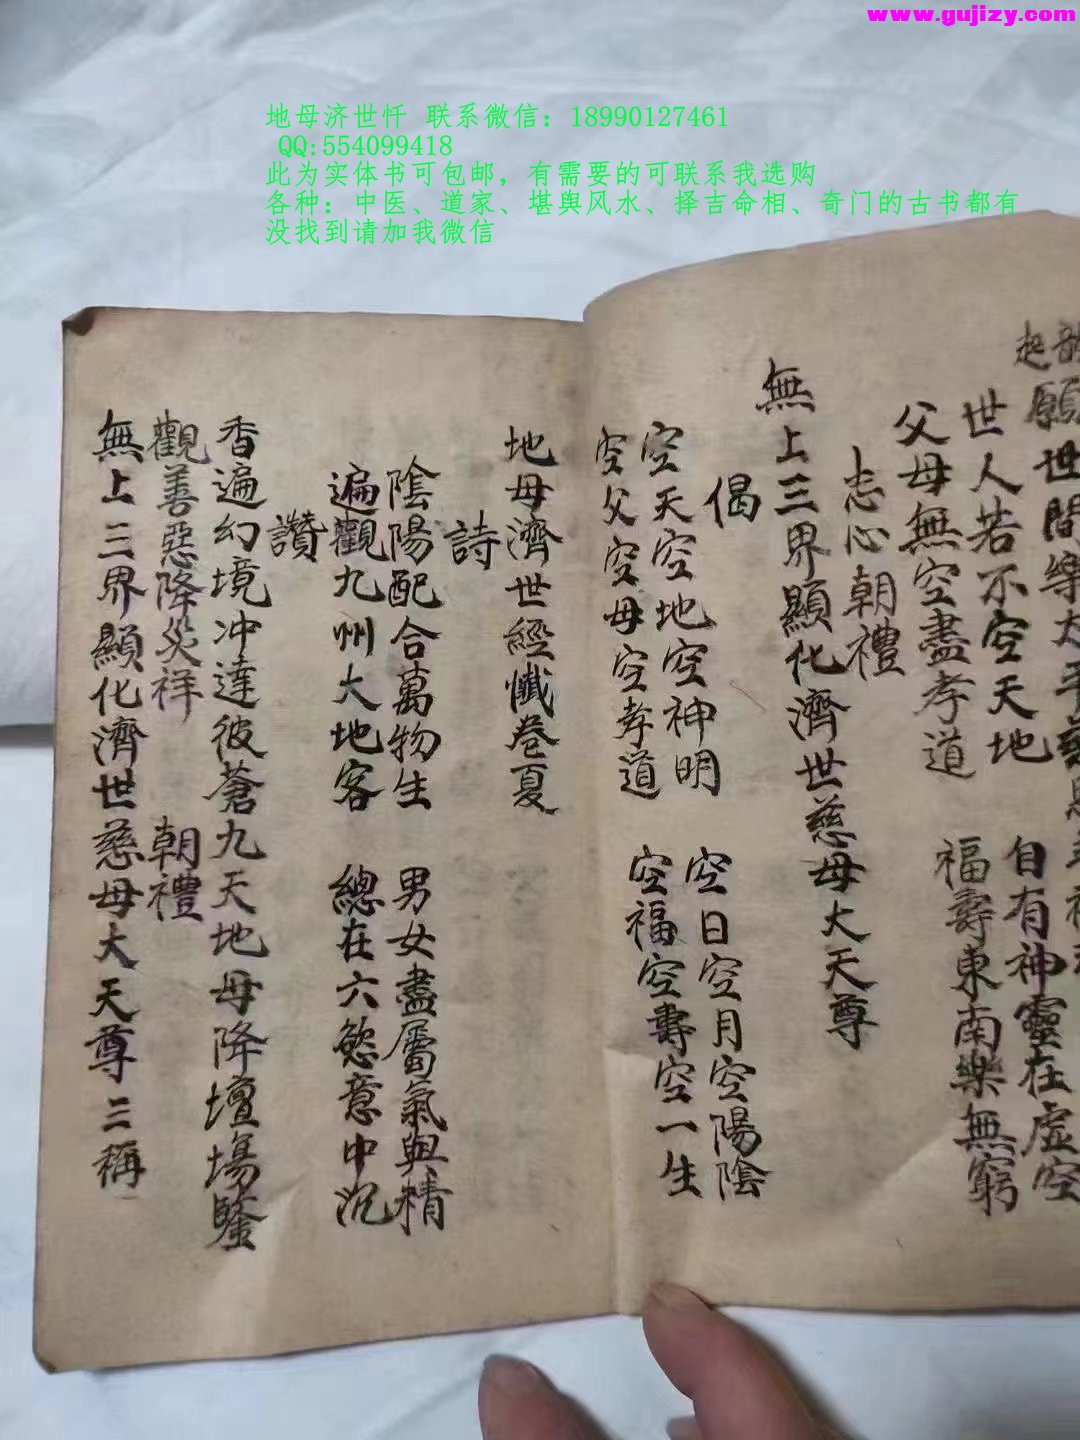 www.gujizy.com
地母济世忏 联系微信：18990127461
QQ:554099418
此为实体书可包邮，有需要的可联系我选购
各种：中医、道家、堪舆风水、择吉命相、奇门的古书都有
没找到请加我微信
韻起
願世間樂太平
世人若不空天地 自有神靈在虛空
父母無空盡孝道 福壽東南樂無窮
志心朝禮
無上三界顯化濟世慈母大天尊
偈
空天空地空神明 空日空月空陽陰
空父空母空孝道 空福空壽空一生
地母濟世經懺卷夏
詩
陰陽配合萬物生 男女盡屬氣與精
遍觀九州大地客 總在六慾意中沉
讚
香遍幻境冲達彼蒼九天地母降壇場鑒
觀善惡降災祥 朝禮
無上三界顯化濟世慈母大天尊三稱